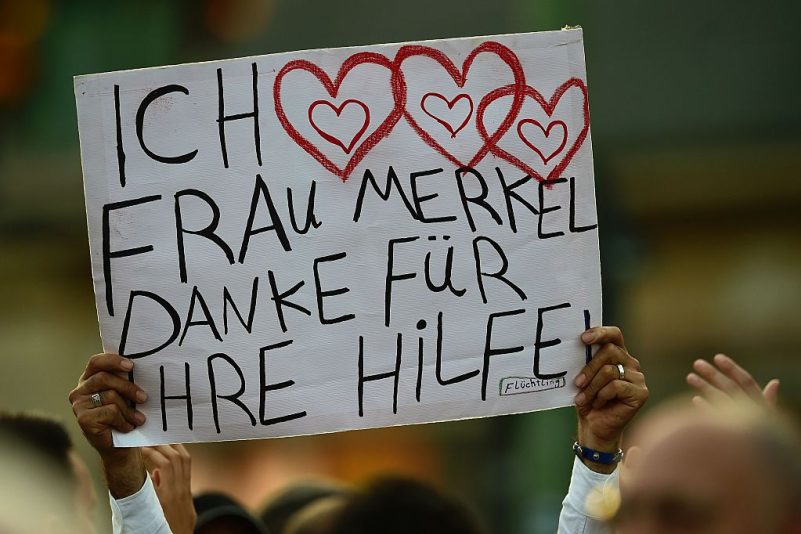 ICH
FRAU MERKEL
DANKE FÜR
IHRE HILFE!
Flüchtling